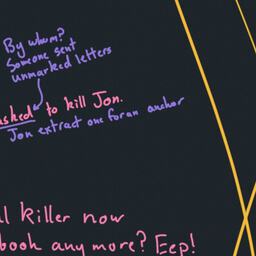 By whom?
Someone sent
unmarked letters
asked to kill Jon.
Jon extract one for an anchor
ll killer now
book any more? Eep!